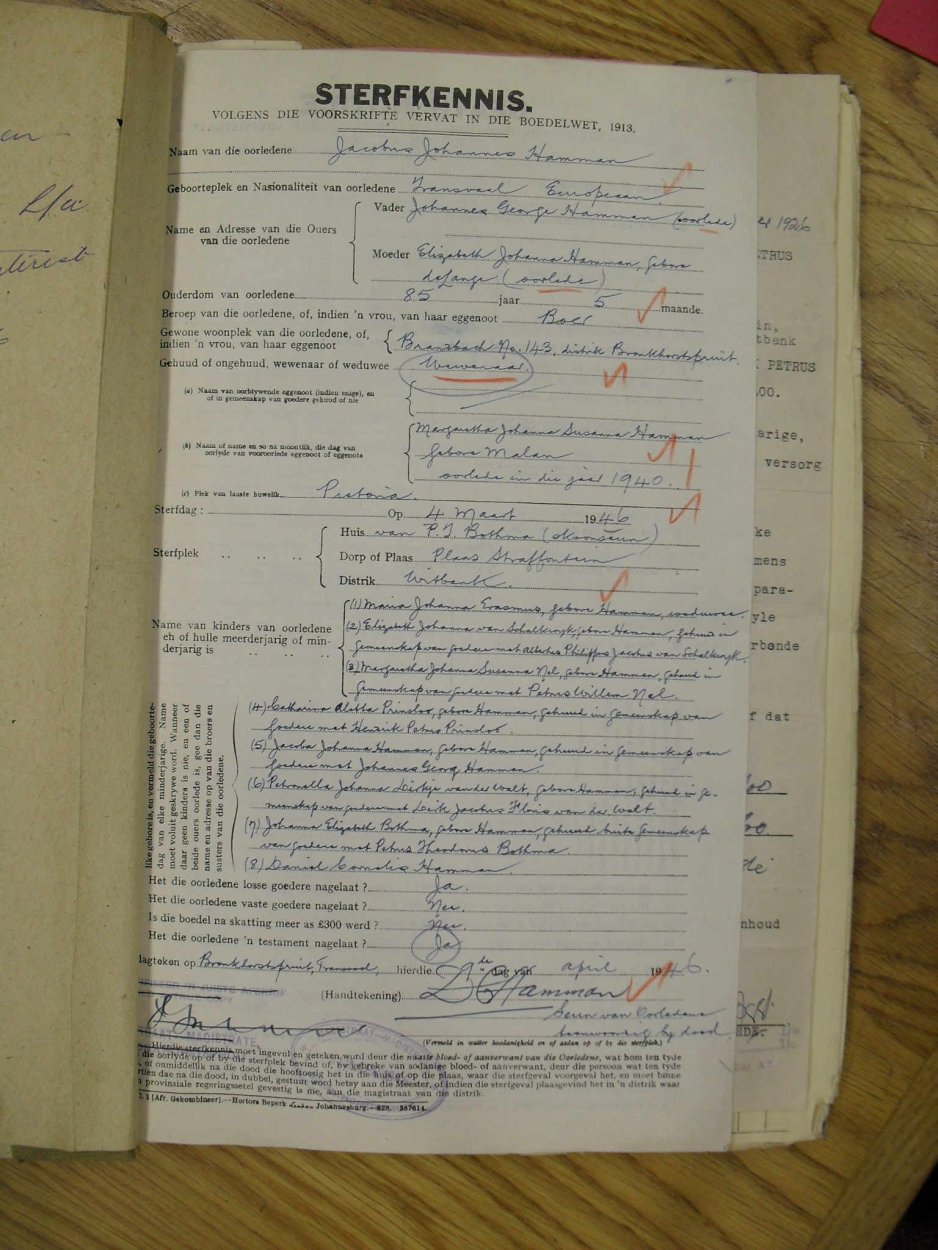 STERFKENNIS.
VOLGENS DIE VOORSKRIFTE VERVAT IN DIE BOEDELWET, 1913.
Naam van die oorledene Jacobus Johannes Hamman
Geboorteplek en Nasionaliteit van oorledene Transvaal Europeaan
Name en Adresse van die Ouers van die oorledene
Vader Johannes George Hamman (oorlede)
Moeder Elizabeth Johanna Hamman, gebore
deLange (oorlede)
Ouderdom van oorledene 85 jaar 5 maande.
Beroep van die oorledene, of, indien 'n vrou, van haar eggenoot Boer
Gewone woonplek van die oorledene, of,
indien 'n vrou, van haar eggenoot No. 143, distrik Bronkhorstspruit
Gehuud of ongehuud, wewenaar of weduwee Wewenaar
(a) Naam van oorblywende eggenoot (indien enige), en
of in gemeenskap van goedere gehuud of nie
(b) Naam of name en so na moontlik, die dag van
oorlyde van vooroorlede eggenoot of eggenote
Margaretha Johanna Susanna Hamman
gebore Malan
oorlede in die jaar 1940.
(c) Plek van laaste huwelik Pretoria.
Sterfdag : Op 4 Maart 1946
Sterfplek
Huis van P. J. Bothma (skoonseun)
Dorp of Plaas Plaas Straffontein
Distrik Witbank.
Name van kinders van oorledene
eh of hulle meerderjarig of min-
derjarig is
(1) Maria Johanna Erasmus, gebore Hamman, weduwee.
(2) Elizabeth Johanna van Schalkwyk, gebore Hamman, gehuud in
gemeenskap van goedere met Philippus Jacobus van Schalkwyk.
(3) Margaretha Johanna Susanna Nel, gebore Hamman, gehuud in
gemeenskap van goedere met Petrus Willem Nel.
like gebore is, en vermeld die geboorte-
dag van elke minderjarige. Name
moet voluit geskrywe word. Wanneer
daar geen kinders is nie, en een of
beide ouers oorlede is, gee dan die
name en adresse op van die broers en
susters van die oorledene.
(4) Catharina Aletta Prinsloo, gebore Hamman, gehuud in gemeenskap van
goedere met Hendrik Petrus Prinsloo.
(5) Jacoba Johanna Hamman, gebore Hamman, gehuud in gemeenskap van
goedere met Johannes Georg Hamman.
(6) Petronella Johanna Dirkje van der Walt, gebore Hamman, gehuud in ge-
meenskap van goedere met Dirk Jacobus Floris van der Walt.
(7) Johanna Elizabeth Bothma, gebore Hamman, gehuud buite gemeenskap
van goedere met Petrus Theodorus Bothma.
(8) Daniel Cornelis Hamman.
Het die oorledene losse goedere nagelaat ? Ja.
Het die oorledene vaste goedere nagelaat ? Nee.
Is die boedel na skatting meer as £300 werd ? Nee.
Het die oorledene 'n testament nagelaat ? Ja
lagteken op Bronkhorstspruit, Transvaal, hierdie 9de dag van april 1946.
(Handtekening) D C Hamman
Seun van Oorledene
teenwoordig by dood
(Vermeld in watter hoedanigheid en of aldan op of by die sterfplek.)
Hierdie sterfkennis moet ingevul en geteken word deur die naaste bloed- of aanverwant van die Oorledene, wat hom ten tyde
die oorlyde op of by die sterfplek bevind of, by gebreke van sodanige bloed- of aanverwant, deur die persoon wat ten tyde
of onmiddellik na die dood die hooftoesig het in die huis of op die plaas, waar die sterfgeval voorgeval het, en moet binne
rtien dae na die dood, in dubbel, gestuur word hetsy aan die Meester, of indien die sterfgeval plaasgevind het in 'n distrik waar
provinsiale regeringssetel gevestig is nie, aan die magistraat van die distrik.
1 (Afr. Gekombineer).—Hortors Beperk Johannesburg.—628. 387614.
1926
TRUS
in,
tbank
PETRUS
00.
arige,
versorg
ke
mens
para-
yle
rbonde
f dat
nhoud